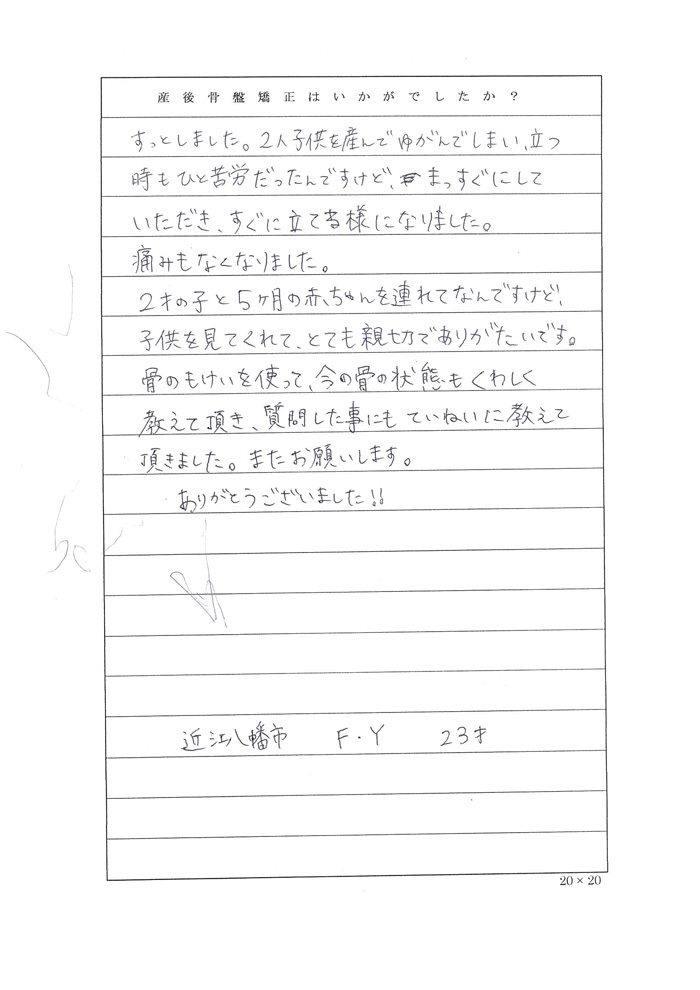 産後骨盤矯正はいかがでしたか？
すっとしました。2人子供を産んでゆがんでしまい、立つ
時もひと苦労だったんですけど、まっすぐにして
いただき、すぐに立てる様になりました。
痛みもなくなりました。
2才の子と5ヶ月の赤ちゃんを連れてなんですけど、
子供を見てくれて、とても親切でありがたいです。
骨のもけいを使って、今の骨の状態もくわしく
教えて頂き、質問した事にもていねいに教えて
頂きました。またお願いします。
ありがとうございました!!
近江八幡市 F・Y 23才
20×20